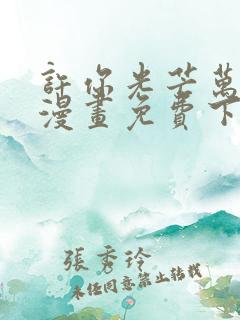 許你光芒萬
漫畫免費下
張秀玲
未任同意禁止转載